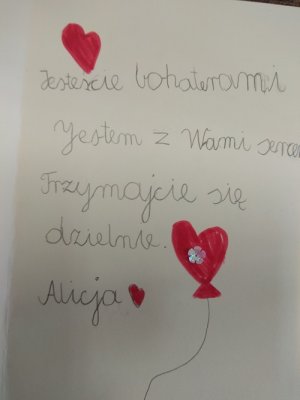 Jesteście bohaterami
Jestem z Wami
Trzymajcie się
dzielnie.
Alicja